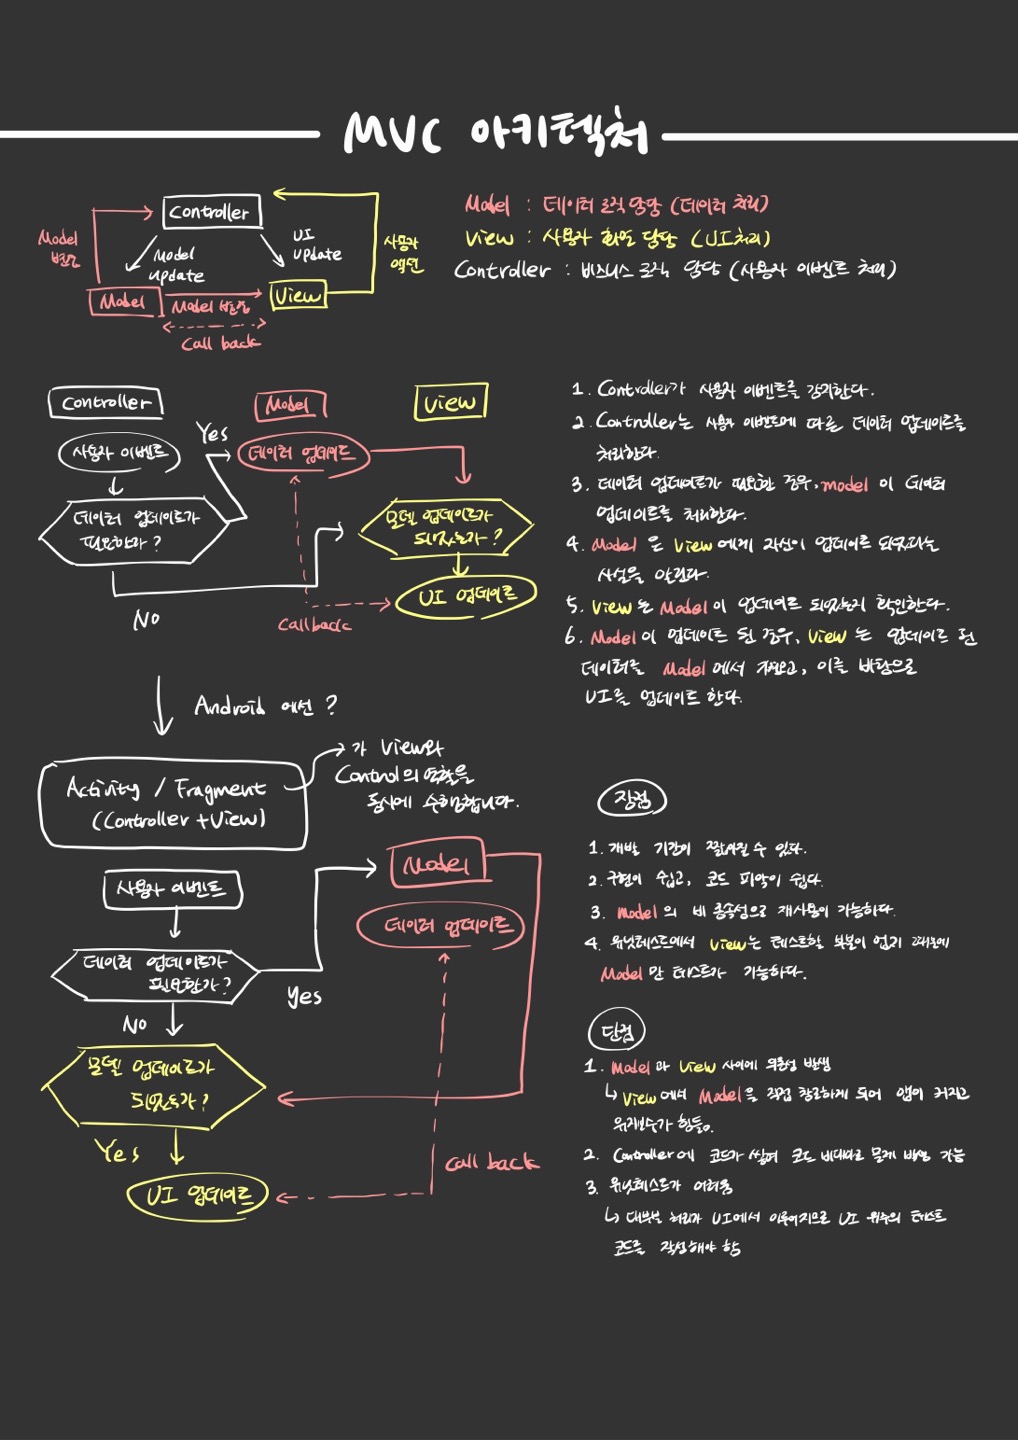 MVC 아키텍처
Controller
Model
Model
update
UI
update
사용자
액션
Model
View
Model
Call back
Model : 데이터 로직 담당 (데이터 처리)
View : 사용자 화면 담당 (UI처리)
Controller : 비즈니스 로직 담당 (사용자 이벤트 처리)
Controller
Model
View
사용자 이벤트
Yes
데이터 업데이트
데이터 업데이트가
필요한가?
모델 업데이트가
되었는가?
UI 업데이트
No
Callback
1. Controller가 사용자 이벤트를 감지한다.
2. Controller는 사용자 이벤트에 따른 데이터 업데이트를
처리한다.
3. 데이터 업데이트가 필요한 경우, model이 데이터
업데이트를 처리한다.
4. Model은 View에게 자신이 업데이트 되었다는
사실을 알린다.
5. View는 Model이 업데이트 되었는지 확인한다.
6. Model이 업데이트 된 경우, View는 업데이트 된
데이터를 Model에서 가져오고, 이를 바탕으로
UI를 업데이트 한다.
Android 에선?
Activity / Fragment
(Controller + View)
가 View와
Control의 역할을
동시에 수행합니다.
사용자 이벤트
Model
데이터 업데이트
데이터 업데이트가
필요한가?
Yes
No
모델 업데이트가
되었는가?
Yes
UI 업데이트
Call back
장점
1. 개발 기간이 짧아질 수 있다.
2. 구현이 쉽고, 코드 파악이 쉽다.
3. Model의 비 종속성으로 재사용이 가능하다.
4. 유닛테스트에서 View는 테스트할 부분이 없기 때문에
Model만 테스트가 가능하다.
단점
1. Model과 View 사이에 의존성 발생
↳ View에서 Model을 직접 참조하게 되어 앱이 커지고
유지보수가 힘들어.
2. Controller에 코드가 쌓여 코드 비대화로 문제 발생 가능
3. 유닛테스트가 어려움
↳ 대부분 처리가 UI에서 이루어지므로 UI 위주의 테스트
코드를 작성해야 함